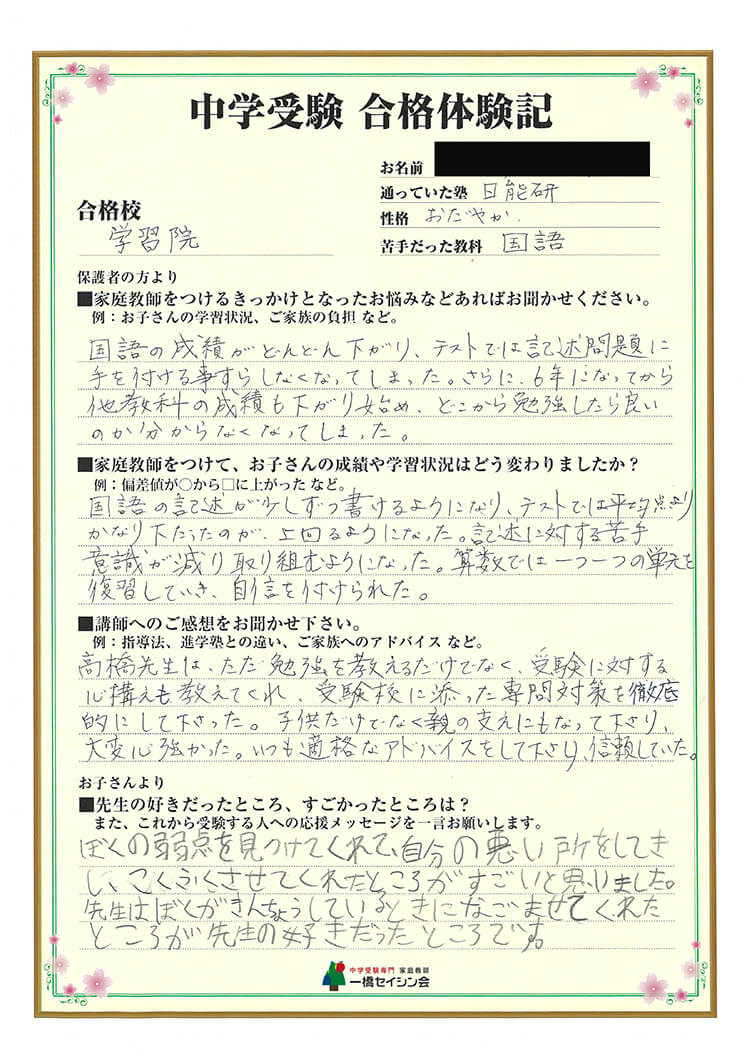 中学受験 合格体験記
お名前
通っていた塾 日能研
合格校
性格 おだやか.
学習院
苦手だった教科 国語
保護者の方より
■家庭教師をつけるきっかけとなったお悩みなどあればお聞かせください。
例：お子さんの学習状況、ご家族の負担 など。
国語の成績がどんどん下がり、テストでは記述問題に
手を付ける事すらしなくなってしまった。さらに、6年になってから
他教科の成績も下がり始め、どこから勉強したら良い
のか分からなくなってしまった。
■家庭教師をつけて、お子さんの成績や学習状況はどう変わりましたか？
例：偏差値が○から□に上がった など。
国語の記述が少しずつ書けるようになり、テストでは平均点より
かなり下だったのが、上回るようになった。記述に対する苦手
意識が減り取り組むようになった。算数では一つ一つの単元を
復習していき、自信を付けられた。
■講師へのご感想をお聞かせ下さい。
例：指導法、進学塾との違い、ご家族へのアドバイス など。
高橋先生は、ただ勉強を教えるだけでなく、受験に対する
心構えも教えてくれ、受験校に添った専問対策を徹底
的にして下さった。子供だけでなく親の支えにもなって下さり、
大変心強かった。いつも適格なアドバイスをして下さり、信頼していた。
お子さんより
■先生の好きだったところ、すごかったところは？
また、これから受験する人への応援メッセージを一言お願いします。
ぼくの弱点を見つけてくれて、自分の悪い所をしてき
し、こくふくさせてくれたところがすごいと思いました。
先生はぼくがきんちょうしているときになごませてくれた
ところが先生の好きだったところです。
中学受験専門 家庭教師
一橋セイシン会